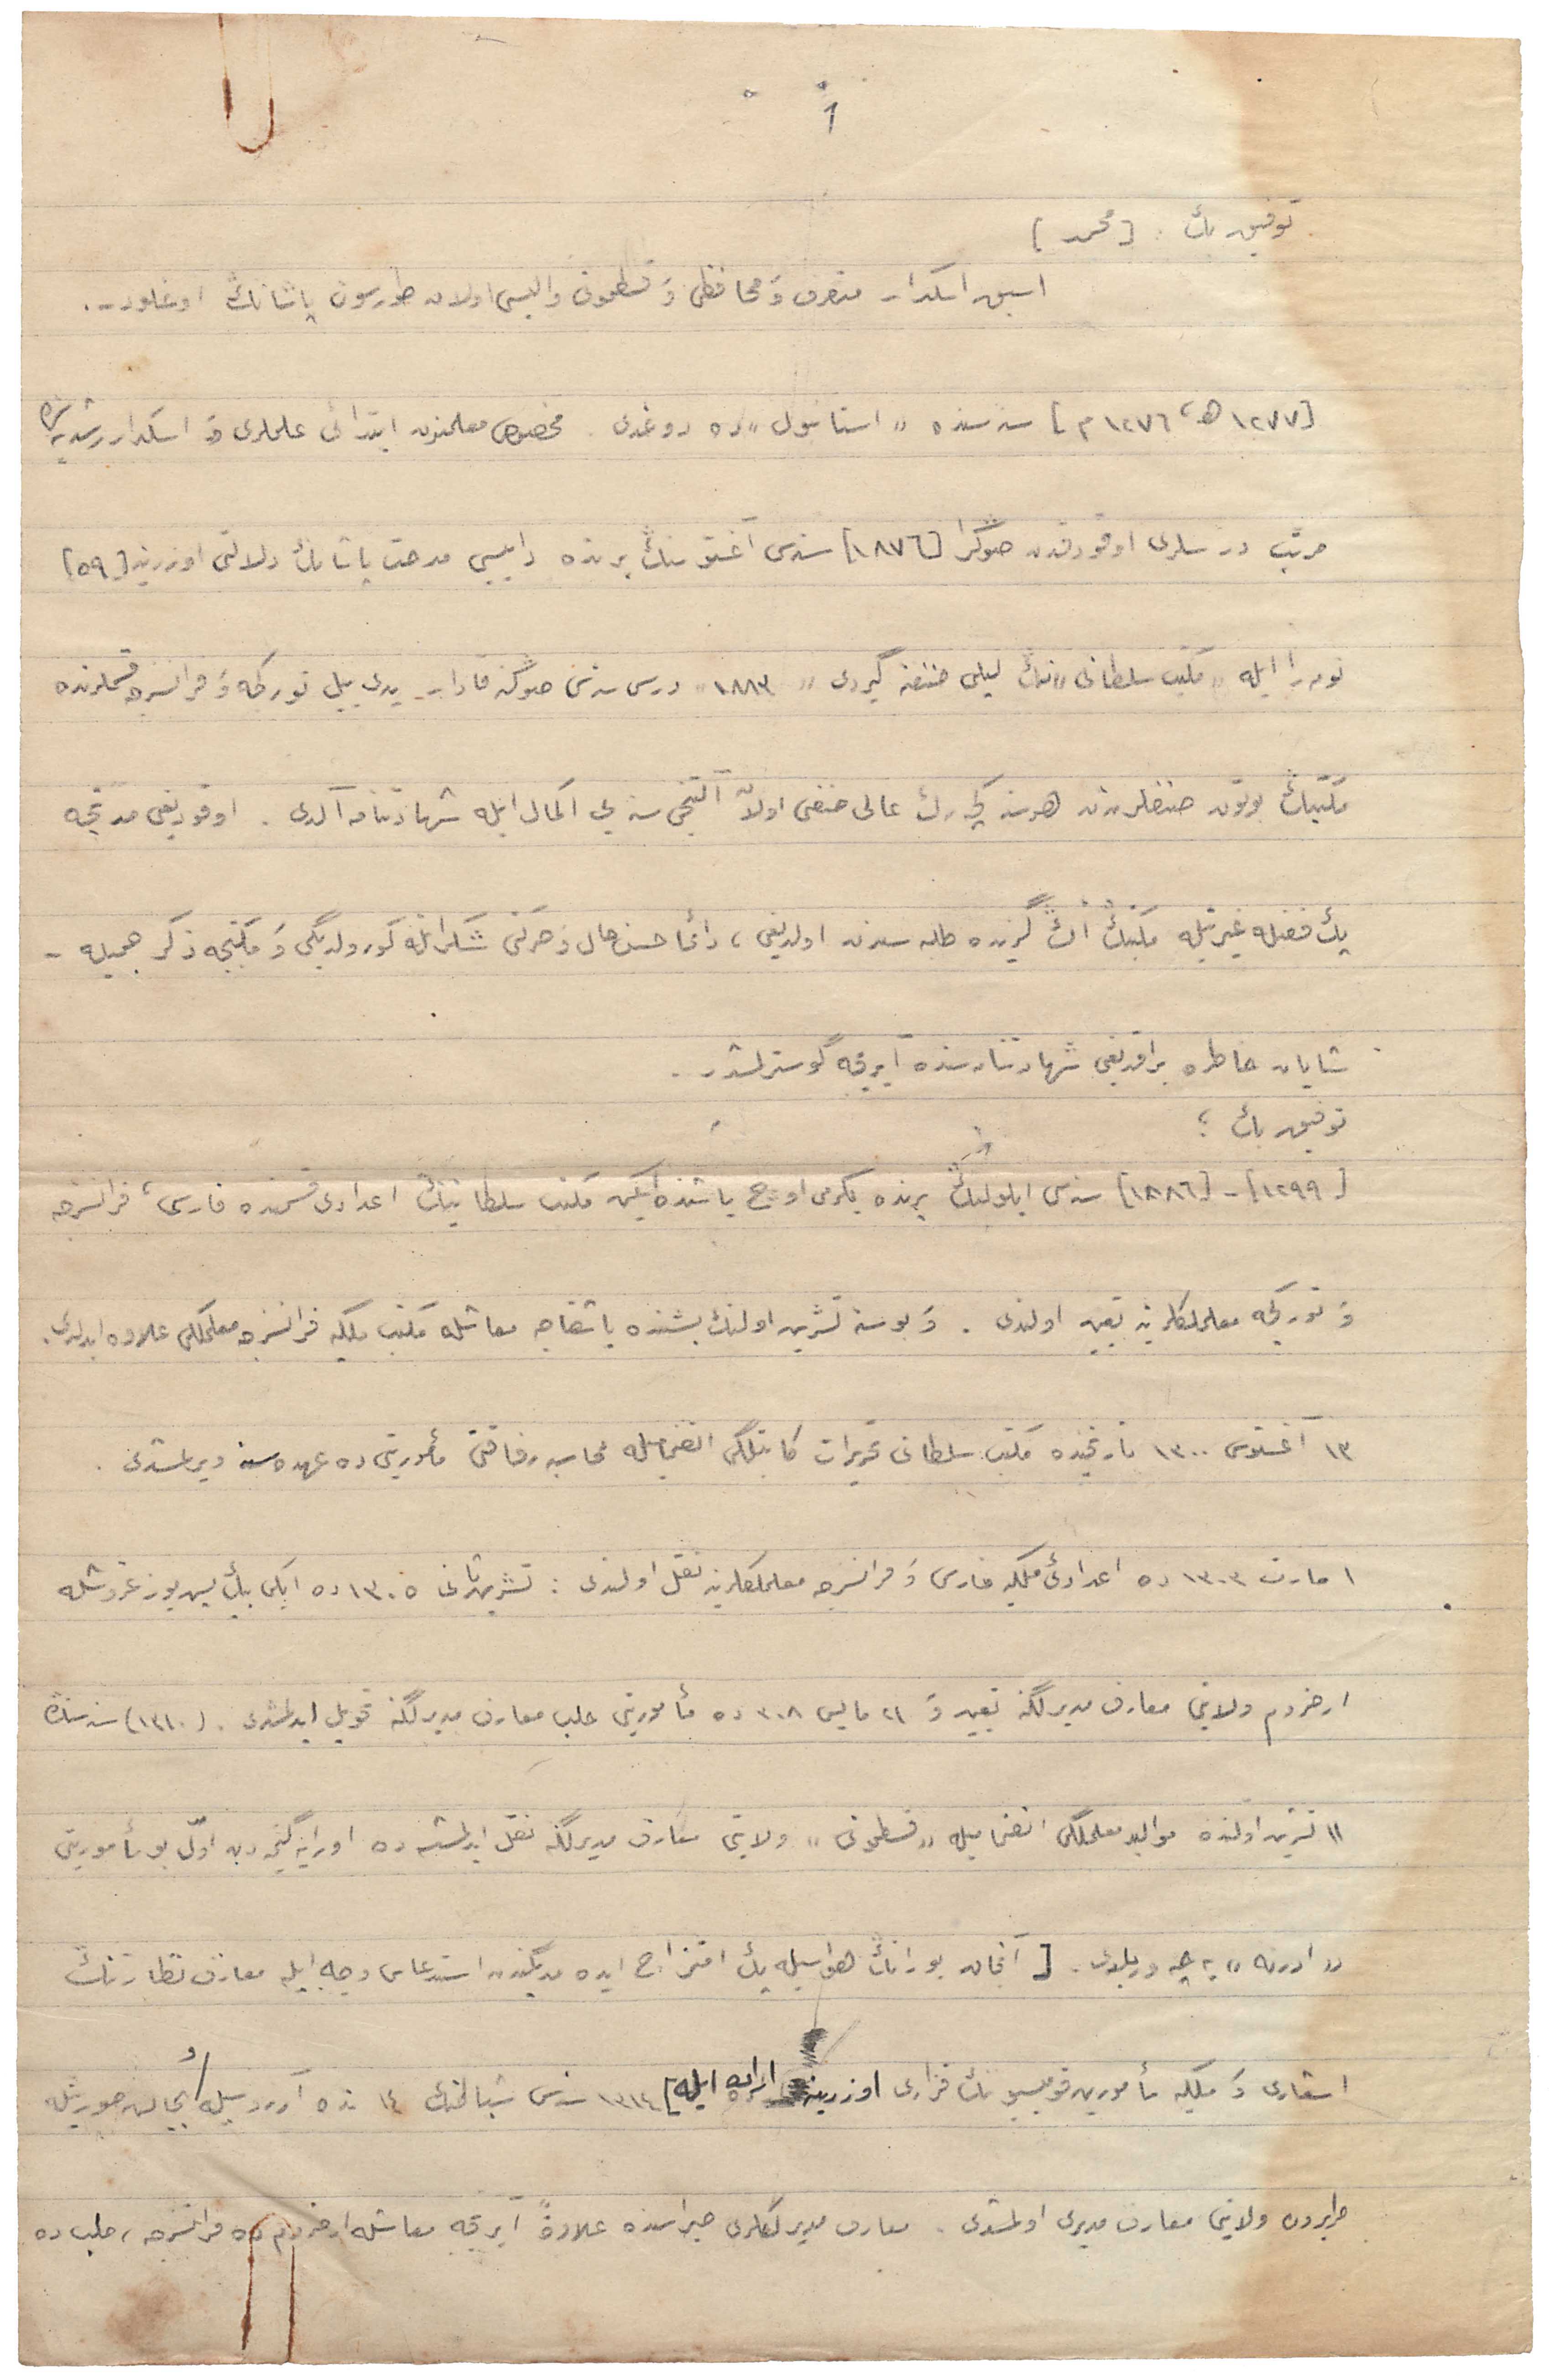 1
توفیق بك : [محمد]
اسبق اسكدار متصرف وَ محافظی وَ قسطمونی والیسی اولان طورسون پاشانك اوغلودر.
[١٢٧٧ هـ، ١٢٧٦ م] سنه سنده «استانبول» ده دوغدی. مخصوص معلمدن ابتدائی علملری وَ اسكدار رشدیه سنده
مرتب درسلری اوقودقدن صوڭرا [١٨٧٦] سنه سی آغستوسنڭ برنده داییسی مدحت پاشانڭ دلالتی اوزرینه [٥٩]
نومرا ایله «مكتب سلطانی» نڭ لیلی صنفنه گیردی «١٨٨٣» درس سنه سی صوڭنه قادار یدی ییل تورکجه وَ فرانسزجه قسملرنده
مكتبڭ بوتون صنفلرندن هر سنه گچه رك عالی صنفی اولان آلتنجی سنه یی اكمال ایله شهادتنامه آلدی. اوقودیغی مدتجه
پك فضله غیرتیله مكتبڭ اڭ گزیده طلبه سندن اولدیغی، دائما حسن حال وَ حركتی شكرانله كورولدیگی وَ مكتبجه ذكر جمیله -
شایان خاطره براقدیغی شهادتنامه سنده آیریجه گوسترلمشدر.
توفیق بك ؛
[١٢٩٩] - [١٨٨٦] سنه سی ایلولنڭ برنده یكرمی اوچ یاشنده ایكن مكتب سلطانینڭ اعدادی قسمنده فارسی، فرانسزجه
وَ تورکجه معلملكلرینه تعیین اولندی. وَ بو سنه تشرین اولنڭ بشنده باشقاجه معاشله مكتب ملكیه فرانسزجه معلملگی علاوه ایدلدی.
١٣ آغستوس ١٣٠٠ تاریخنده مكتب سلطانی تحریرات كاتبلگی انضمامیله محاسبه رفاقتی مأموریتی ده عهده سنه ویرلمشدی.
١ مارت ١٣٠٣ ده اعدادئ ملكیه فارسی وَ فرانسزجه معلملكلرینه نقل اولندی : تشرین ثانی ١٣٠٥ ده ایكی بیڭ بش یوز غروشله
ارضروم ولایتی معارف مدیرلگنه تعیین وَ ٢١ مایس ٣٠٨ ده مأموریتی حلب معارف مدیرلگنه تحویل ایدلمشدی. (١٣١٠) سنه سنڭ
١١ تشرین اولنده موالید معلملگی انضمامیله «قسطمونی» ولایتی معارف مدیرلگنه نقل ایدلمشسه ده اورایه گیتمه دن اوّل بو مأموریتی
«ادرنه» یه چوریلدی. [آنجاق بورانڭ هواسیله پك امتزاج ایده مدیگندن استدعاسی وجه ایله معارف نظارتنڭ
اشعاری وَ ملكیه مأمورین قومیسیوننڭ قراری اوزرینه اراده ایله] ١٣١٤ سنه سی شباطنڭ ١٤ نده آرزوسیله وَ بجایش صورتیله
طرابزون ولایتی معارف مدیری اولمشدی. معارف مدیرلكلری صیراسنده علاوةً آیریجه معاشله ارضروم ده فرانسزجه، حلب ده